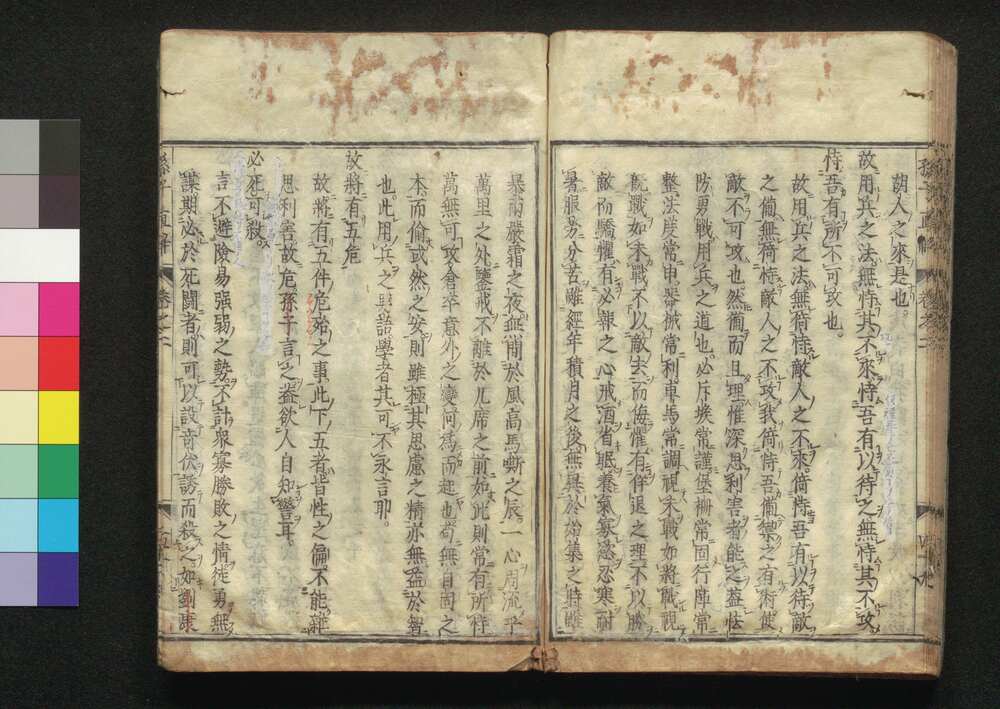 謂人之來是也。
故用兵之法無恃其不來恃吾有以待之無恃其不攻
恃吾有所不可攻也。
故用兵之法無倚恃敵人之不來倚恃吾有以待敵
之備無倚恃敵人之不攻我倚恃吾備禦之有術使
敵不可攻也然備而且理惟深思利害者能之蓋怯
防勇戰用兵之道也必斥堠常謹堡柵常固行陣常
整法度常申器械常利車馬常調視未戰如將戰視
既戰如未戰不以敵去而侮懼有佯退之理不以勝
敵而驕懼有必報之心戒酒省眠養氣寡慾忍寒耐
暑服勞分苦雖經年積月之後無異於始集之時雖
暴雨嚴霜之夜無間於風高馬嘶之辰。一心周流乎
萬里之外鑒戒不離於几席之前如此則常有所恃
萬無可攻倉卒意外之變何爲而延也苟無自固之
本而偷或然之安則雖極其思慮之精亦無益於智
也此用兵之與語學者其可不永言耶。
故將有五危
故將有五件危殆之事此下五者皆性之偏不能雜
思利害故危孫子言之盖欲人自知警耳。
必死可殺。
言不避險易强弱之勢。不計衆寡勝敗之情徒勇無
謀期必於死鬪者則可以設奇伏誘而殺之如劉康
孫子直解 卷之二